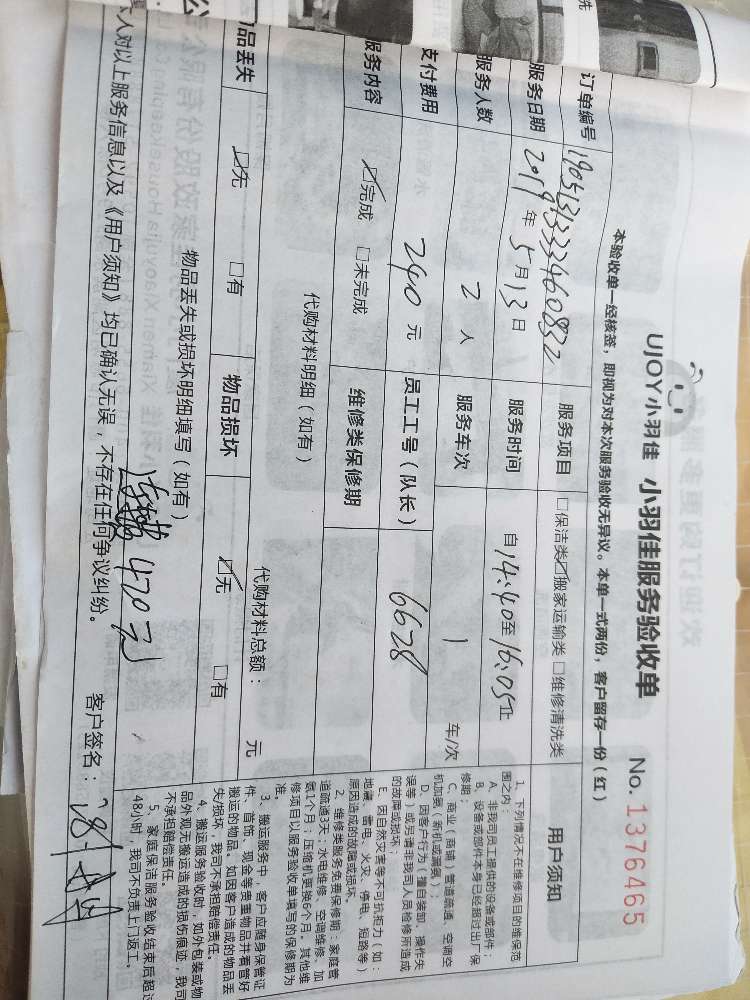 UJOY小羽佳 小羽佳服务验收单 No.1376465
本验收单一经核签，即视为对本次服务验收无异议。本单一式两份，客户留存一份（红）
订单编号
服务项目 □保洁类 ☑搬家运输类 □维修清洗类
服务日期 2019年5月13日
服务时间 自14:40至16:05止
服务人数 2人
服务车次 1 车/次
支付费用 240元
员工工号（队长） 6628
服务内容 ☑完成 □未完成
维修类保修期
代购材料明细（如有）
代购材料总额： 元
品丢失 ☑无 □有
物品损坏 ☑无 □有
物品丢失或损坏明细填写（如有）
470元
人对以上服务信息以及《用户须知》均已确认无误，不存在任何争议纠纷。
客户签名：
用户须知
1、下列情况不在维修项目的维保范
围之内：
A、非我司员工提供的设备或部件；
B、设备或部件本身已经超过出厂保
修期；
C、商业（商铺）管道疏通、空调空
机加氨（新机或漏氨）；
D、因客户行为（擅自装卸、操作失
误等）或另请非我司人员检修所造成
的故障或损坏；
E、因自然灾害等不可抗拒力（如：
地震、雷电、火灾、停电、短路等）
原因造成的故障或损坏。
2、维修类服务免费保修期：家庭管
道疏通3天；水电维修、空调维修、加
氨1个月；压缩机更换6个月。其他维
修项目以服务验收单填写的保修期为
准。
3、搬运服务中，客户应随身保管证
件、首饰、现金等贵重物品并看管好
搬运的物品。如因客户造成的物品丢
失/损坏，我司不承担赔偿责任。
4、搬运服务验收时，如外包装或物
品外观无搬运造成的损伤痕迹，我司
不承担赔偿责任。
5、家庭保洁服务验收结束后超过
48小时，我司不负责上门返工。